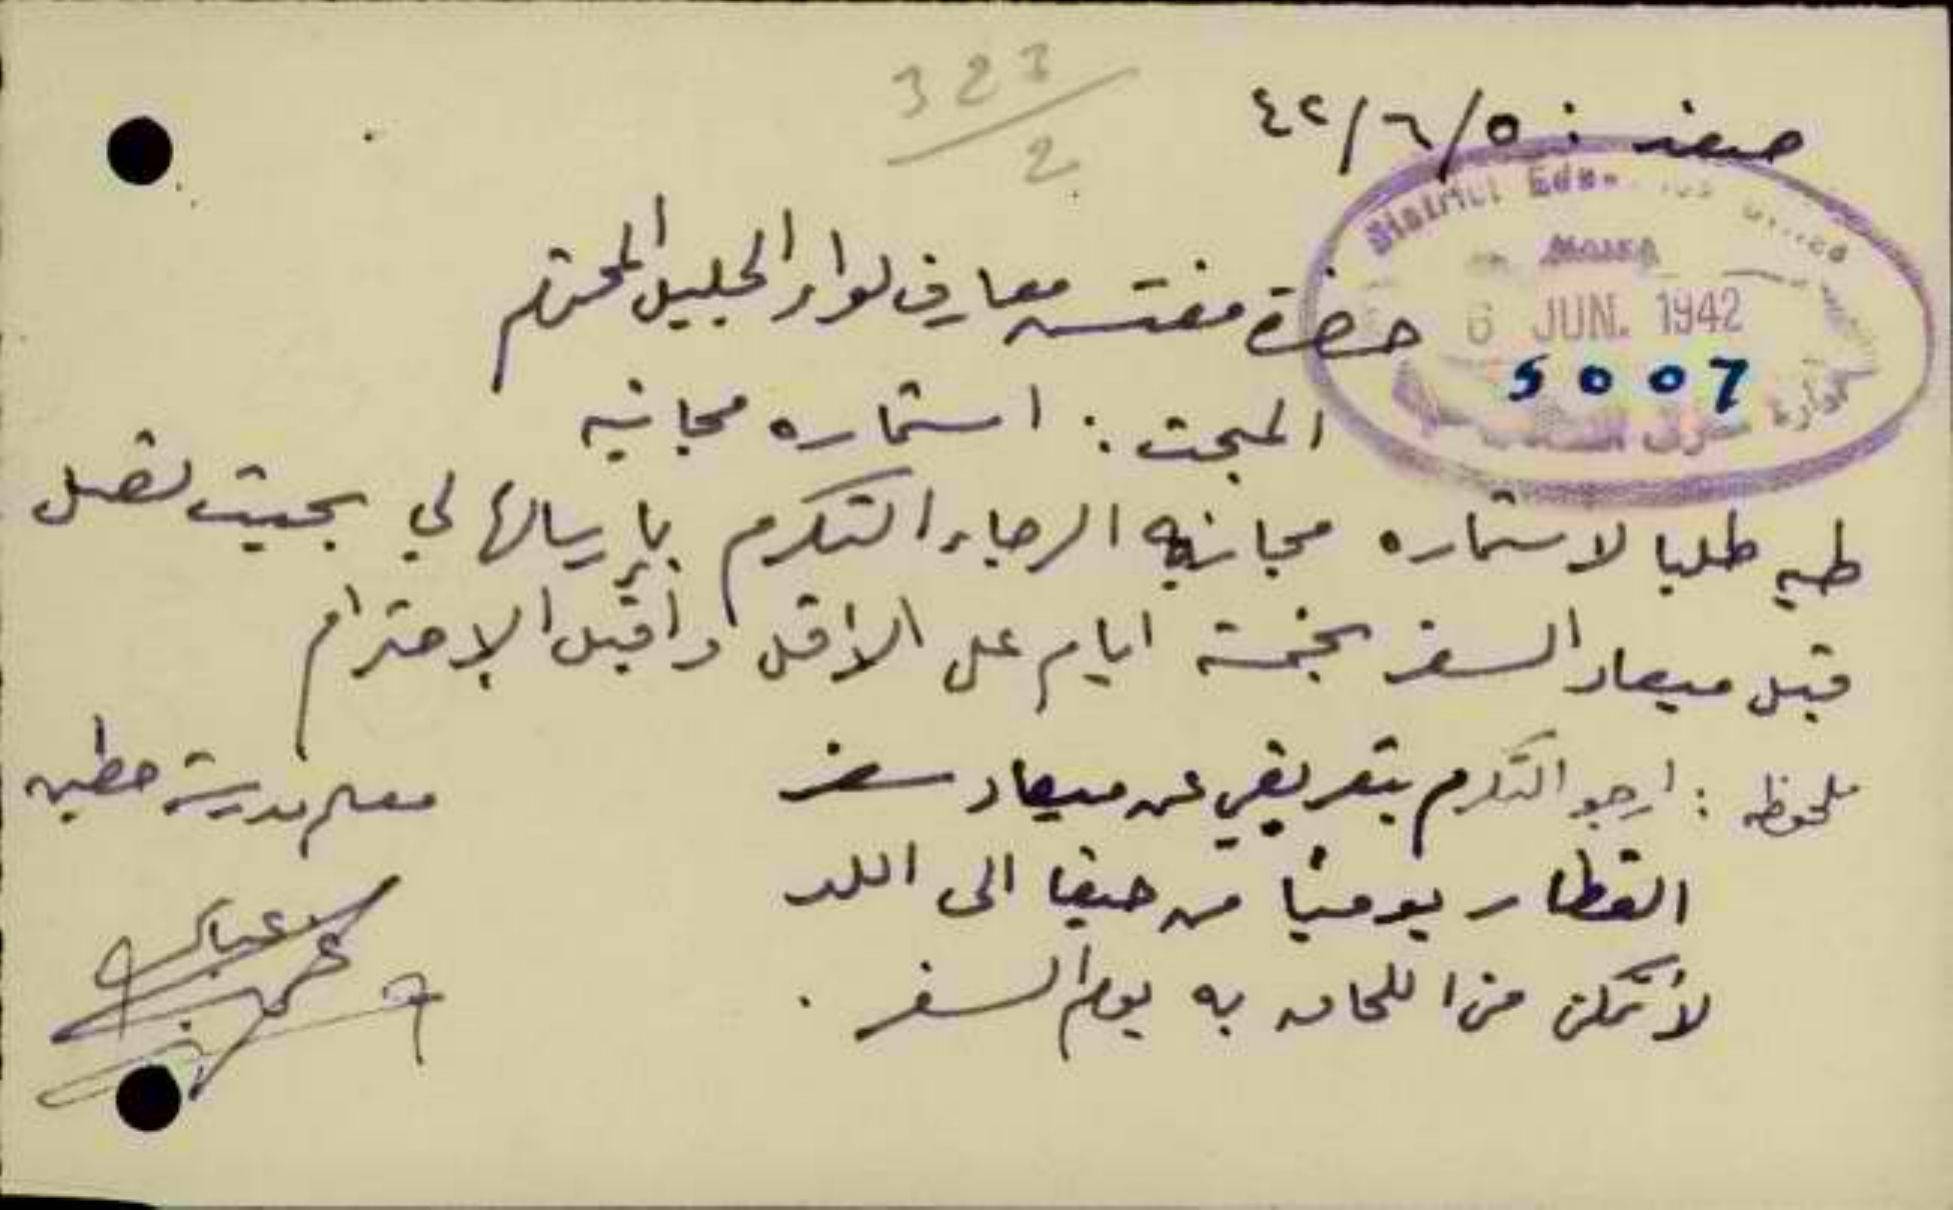 323
2
صفد : ٤٢/٦/٥
District
6 JUN. 1942
5007
حضرة مفتش معارف لواء الجليل المحترم
المبحث : استماره مجانيه
طيه طلبا لاستماره مجانيه الرجاء التكرم بإرسالها لي بحيث تصل
قبل ميعاد السفر بخمسة ايام على الاقل واقبل الاحترام
معلم مدرسة حطين
ملحوظه : ارجو التكرم بتعريفي عن ميعاد سفر
القطار يوميا من حيفا الى اللد
لأتمكن من اللحاق به يوم السفر .